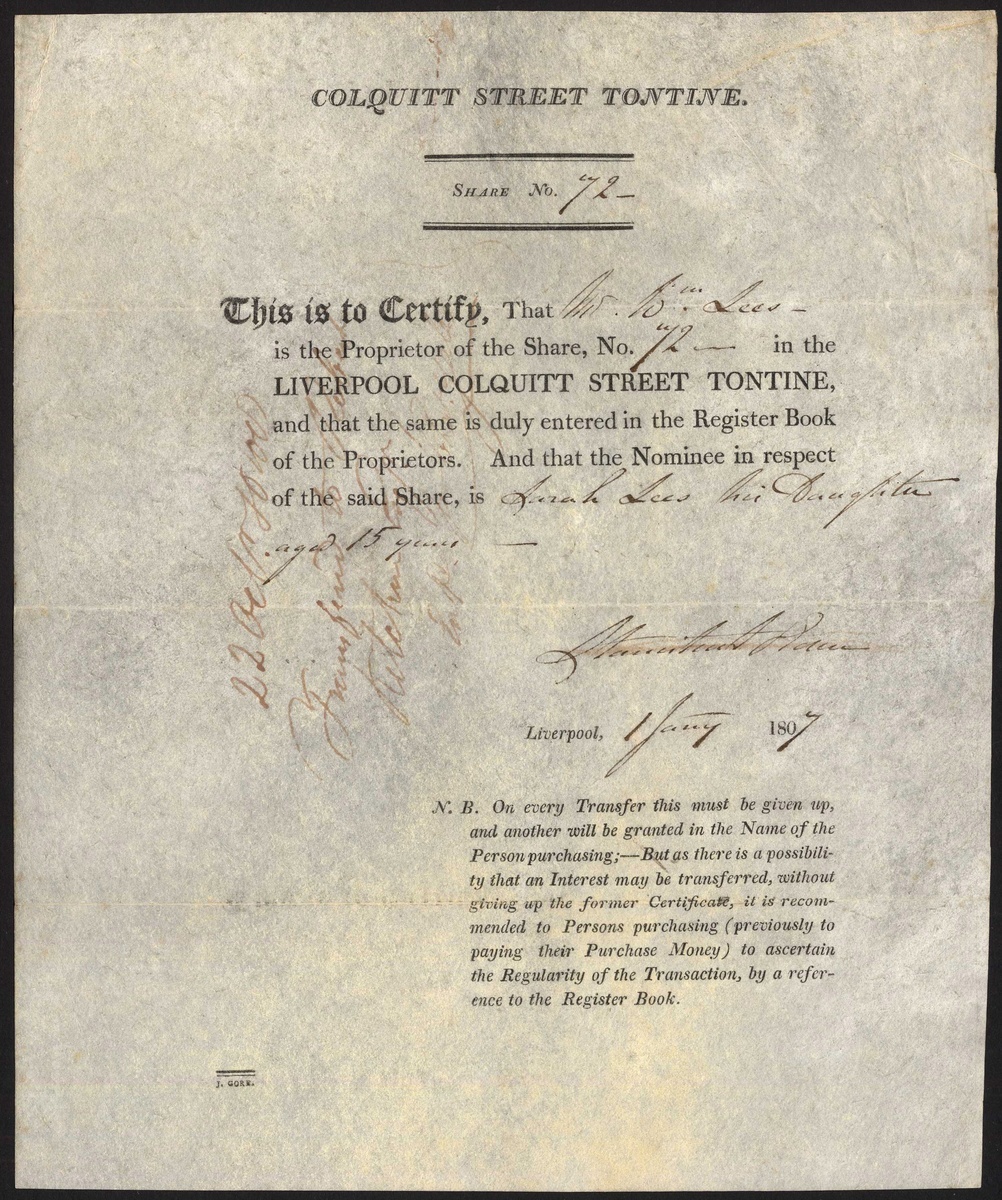 COLQUITT STREET TONTINE.
SHARE No. 72–
This is to Certify, That Mr. Wm. Lees –
is the Proprietor of the Share, No. 72 — in the
LIVERPOOL COLQUITT STREET TONTINE,
and that the same is duly entered in the Register Book
of the Proprietors. And that the Nominee in respect
of the said Share, is Sarah Lees his Daughter
aged 15 years —
Liverpool, 1 Jany 1807
N. B. On every Transfer this must be given up,
and another will be granted in the Name of the
Person purchasing;—But as there is a possibili-
ty that an Interest may be transferred, without
giving up the former Certificate, it is recom-
mended to Persons purchasing (previously to
paying their Purchase Money) to ascertain
the Regularity of the Transaction, by a refer-
ence to the Register Book.
J. GORE.
22
Transferred to